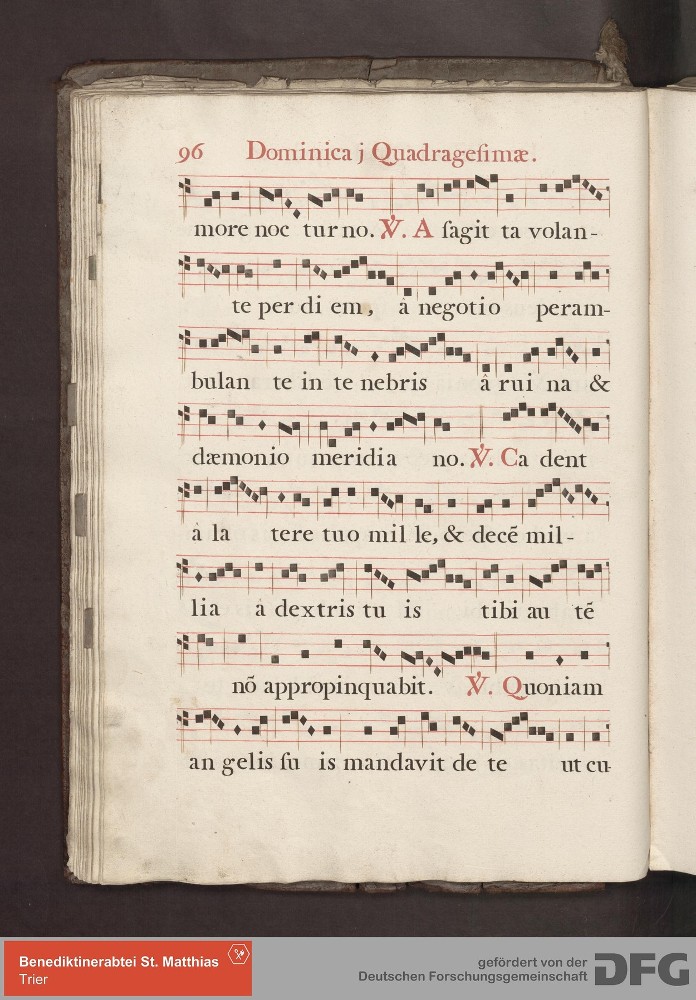 96 Dominica j Quadragesimæ.
more noc turno. ℣. A sagit ta volan-
te per di em, à negotio peram-
bulan te in te nebris à rui na &
dæmonio meridia no. ℣. Ca dent
à la tere tuo mil le, & decē mil-
lia à dextris tu is tibi au tē
nō appropinquabit. ℣. Quoniam
an gelis su is mandavit de te ut cu-
Benediktinerabtei St. Matthias
Trier
gefördert von der
Deutschen Forschungsgemeinschaft DFG